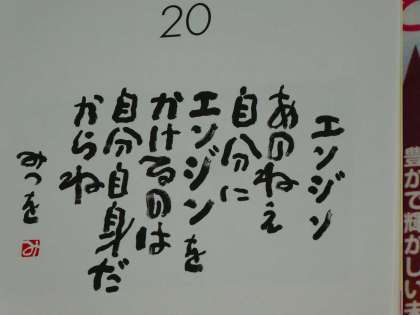 20
エンジン
あのねえ
自分に
エンジンを
かけるのは
自分自身だ
からね
みつを
み
豊かで輝かしい